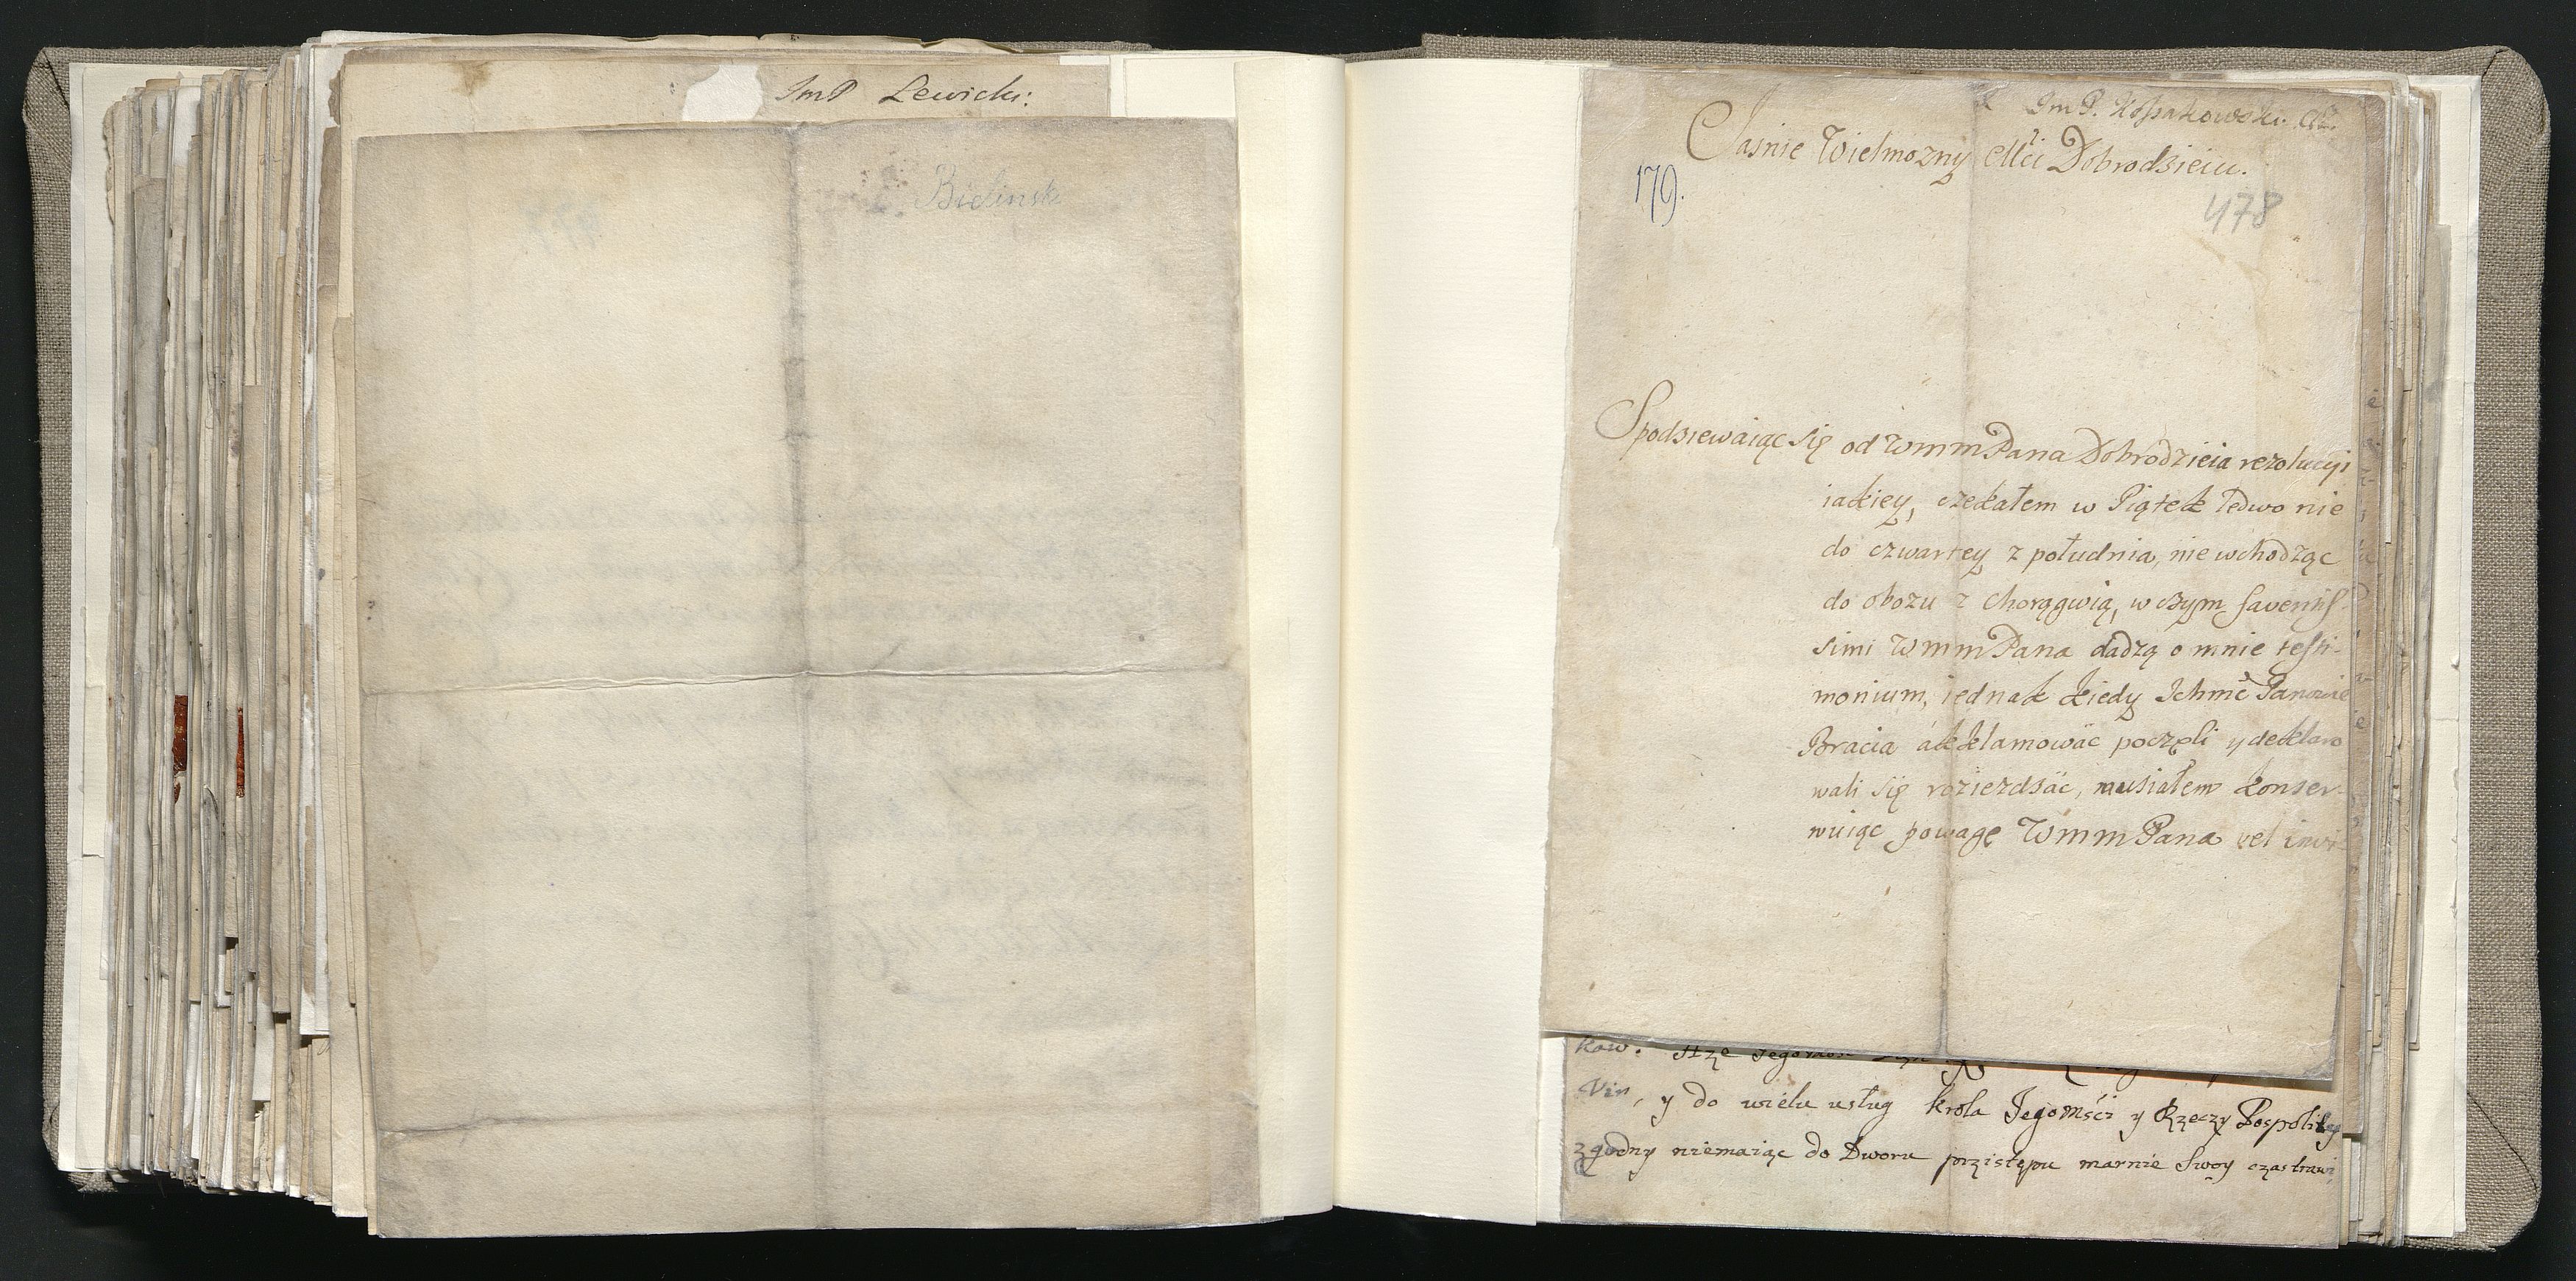 ImP Lewicki:
Bielinski
ImP. Kossakowski.
Jasnie Wielmozny Mći Dobrodzieiu.
179.
478
Spodziewaiąc się od WmmPana Dobrodzieia rezolucyi
iakiey, czekałem w Piątek ledwo nie
do czwartey z południa, nie wchodząc
do obozu z chorągwią, w czym
simi WmmPana dadzą o mnie testi-
monium, iednak kiedy Ichmć Panowie
Bracia akklamowáć poczęli y deklaro
wali się rozieżdżáć, musiałem konser-
wuiąc powagę WmmPana vel invi-
kow.
Vir, y do wielu usług krola Jegomści y Rzeczy Pospolitey
zgodny niemaiąc do Dworu przistępu marnie Swoy czas trawi